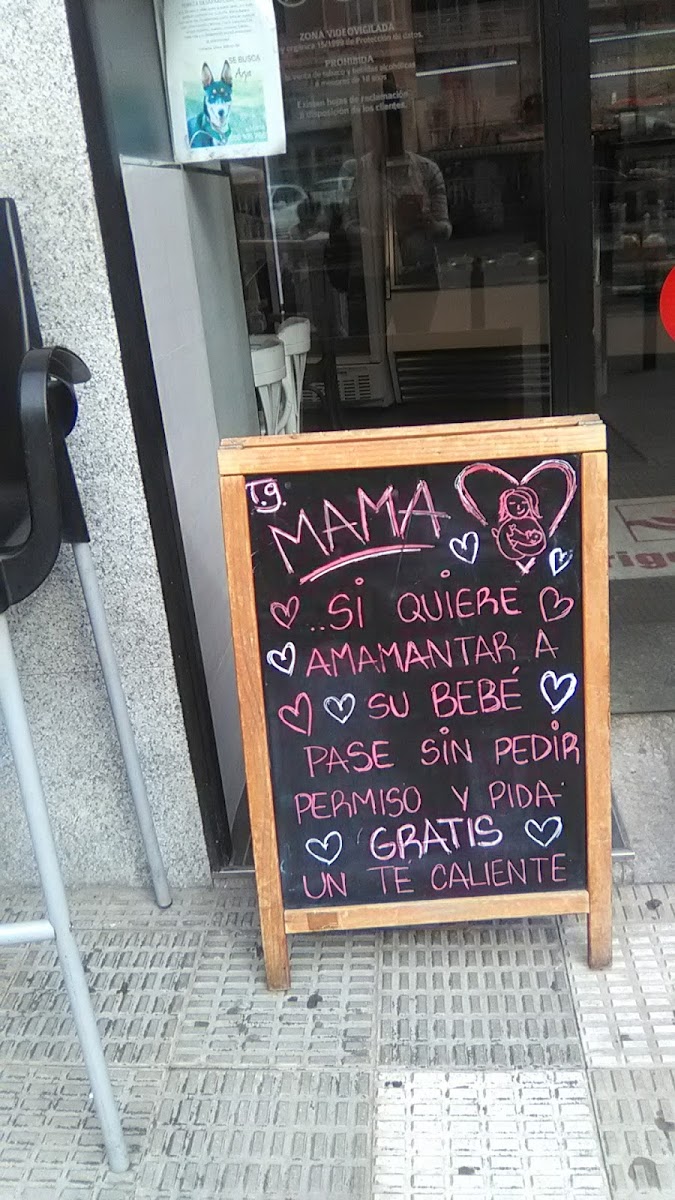 SE BUSCA
ZONA VIDEOVIGILADA
orgánica 15/1999 de Protección de datos.
PROHIBIDA
la venta de tabaco y bebidas alcohólicas
a menores de 18 años
Existen hojas de reclamación
a disposición de los clientes.
T.g.
MAMA
..SI QUIERE
AMAMANTAR A
SU BEBÉ
PASE SIN PEDIR
PERMISO Y PIDA
GRATIS
UN TÉ CALIENTE